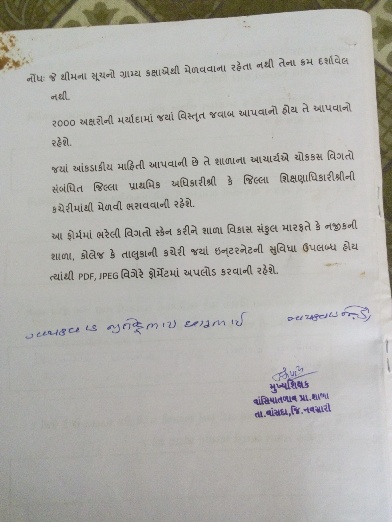 નોંધઃ જે થીમના સૂચનો ગ્રામ્ય કક્ષાએથી મેળવવાના રહેતા નથી તેના ક્રમ દર્શાવેલ
નથી.
૨૦૦૦ અક્ષરોની મર્યાદામાં જયાં વિસ્તૃત જવાબ આપવાનો હોય તે આપવાનો
રહેશે.
જયાં આંકડાકીય માહિતી આપવાની છે તે શાળાના આચાર્યએ ચોકકસ વિગતો
સંબંધિત જિલ્લા પ્રાથમિક અધિકારીશ્રી કે જિલ્લા શિક્ષણાધિકારીશ્રીની
કચેરીમાંથી મેળવી ભરાવવાની રહેશે.
આ ફોર્મમાં ભરેલી વિગતો સ્કેન કરીને શાળા વિકાસ સંકુલ મારફતે કે નજીકની
શાળા, કોલેજ કે તાલુકાની કચેરી જયાં ઇન્ટરનેટની સુવિધા ઉપલબ્ધ હોય
ત્યાંથી PDF, JPEG વિગેરે ફોર્મેટમાં અપલોડ કરવાની રહેશે.
મુખ્યશિક્ષક
વાંસિયાતળાવ પ્રા.શાળા
તા.વાંસદા,જિ.નવસારી